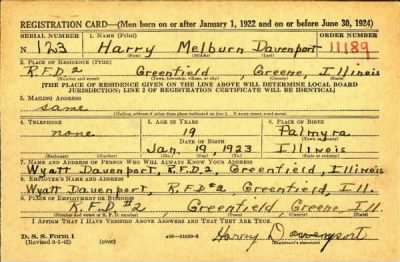 REGISTRATION CARD—(Men born on or after January 1, 1922 and on or before June 30, 1924)
SERIAL NUMBER 1. NAME (Print) ORDER NUMBER
N 123 Harry Melburn Davenport 11189
(First) (Middle) (Last)
2. PLACE OF RESIDENCE (Print)
R.F.D.2 Greenfield, Greene, Illinois
(Number and street) (Town, township, village, or city) (County) (State)
[THE PLACE OF RESIDENCE GIVEN ON THE LINE ABOVE WILL DETERMINE LOCAL BOARD
JURISDICTION; LINE 2 OF REGISTRATION CERTIFICATE WILL BE IDENTICAL]
3. MAILING ADDRESS
same
(Mailing address if other than place indicated on line 2. If same insert word same)
4. TELEPHONE 5. AGE IN YEARS 6. PLACE OF BIRTH
none 19 Palmyra
DATE OF BIRTH
Jan. 19, 1923 Illinois
7. NAME AND ADDRESS OF PERSON WHO WILL ALWAYS KNOW YOUR ADDRESS
Wyatt Davenport, R.F.D.2, Greenfield, Illinois
8. EMPLOYER'S NAME AND ADDRESS
Wyatt Davenport, R.F.D #2, Greenfield, Ill.
9. PLACE OF EMPLOYMENT OR BUSINESS
R.F.D #2 Greenfield, Greene, Ill.
(Number and street or R. F. D. number) (Town) (County) (State)
I AFFIRM THAT I HAVE VERIFIED ABOVE ANSWERS AND THAT THEY ARE TRUE.
D. S. S. Form 1
(Revised 6-1-42) Harry Davenport
(Registrant's signature)